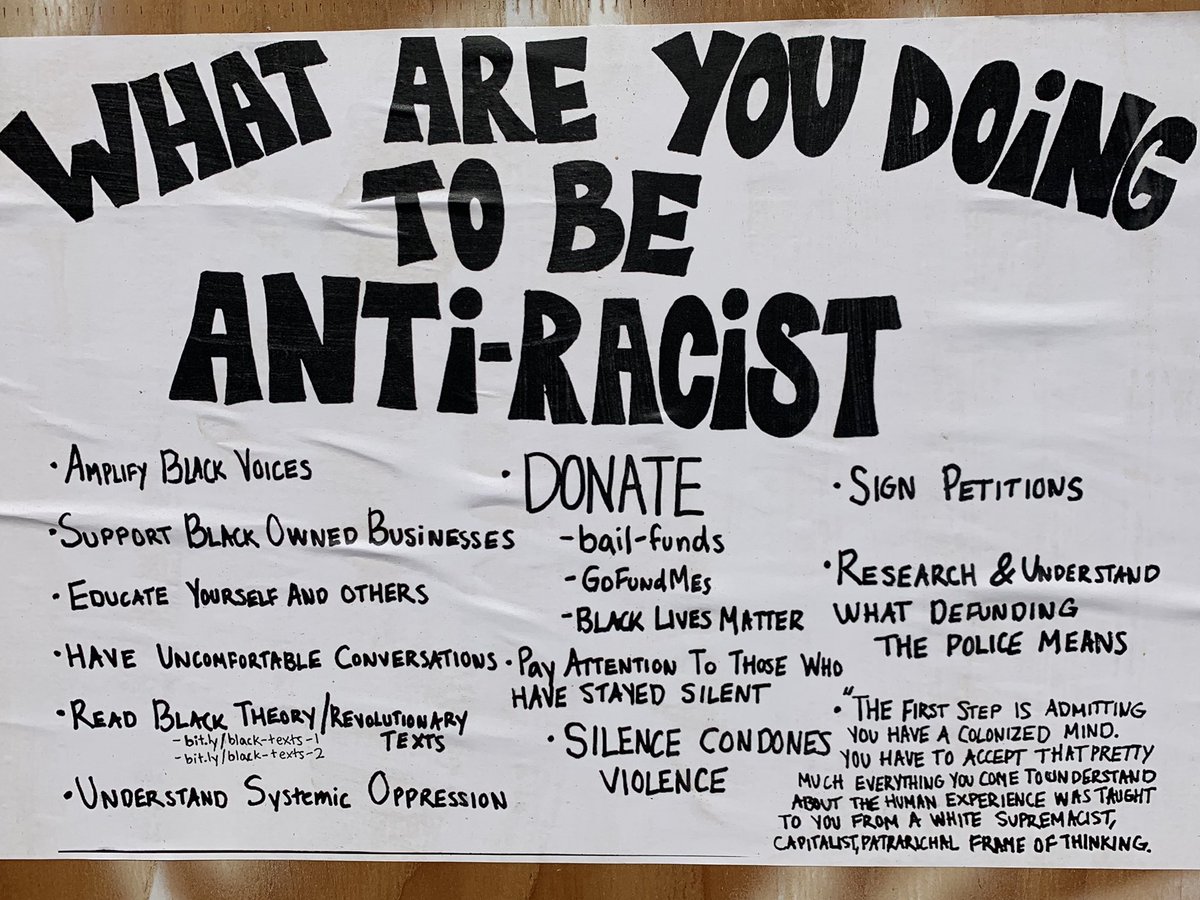 WHAT ARE YOU DOiNG
TO BE
ANTi-RACiST
· AMPLIFY BLACK VOICES
· SUPPORT BLACK OWNED BUSiNESSES
· EDUCATE YOURSELF AND OTHERS
· HAVE UNCOMFORTABLE CONVERSATIONS
· READ BLACK THEORY/REVOLUTIONARY
TEXTS
- bit.ly/black-texts-1
- bit.ly/black-texts-2
· UNDERSTAND SYSTEMIC OPPRESSION
· DONATE
- bail-funds
- GOFUNDMES
- BLACK LIVES MATTER
· PAY ATTENTION TO THOSE WHO
HAVE STAYED SILENT
· SILENCE CONDONES
VIOLENCE
· SIGN PETITIONS
· RESEARCH & UNDERSTAND
WHAT DEFUNDING
THE POLICE MEANS
· "THE FIRST STEP IS ADMITTING
YOU HAVE A COLONIZED MIND.
YOU HAVE TO ACCEPT THAT PRETTY
MUCH EVERYTHING YOU COME TO UNDERSTAND
ABOUT THE HUMAN EXPERIENCE WAS TAUGHT
TO YOU FROM A WHITE SUPREMACIST,
CAPITALIST, PATRARICHAL FRAME OF THINKING.